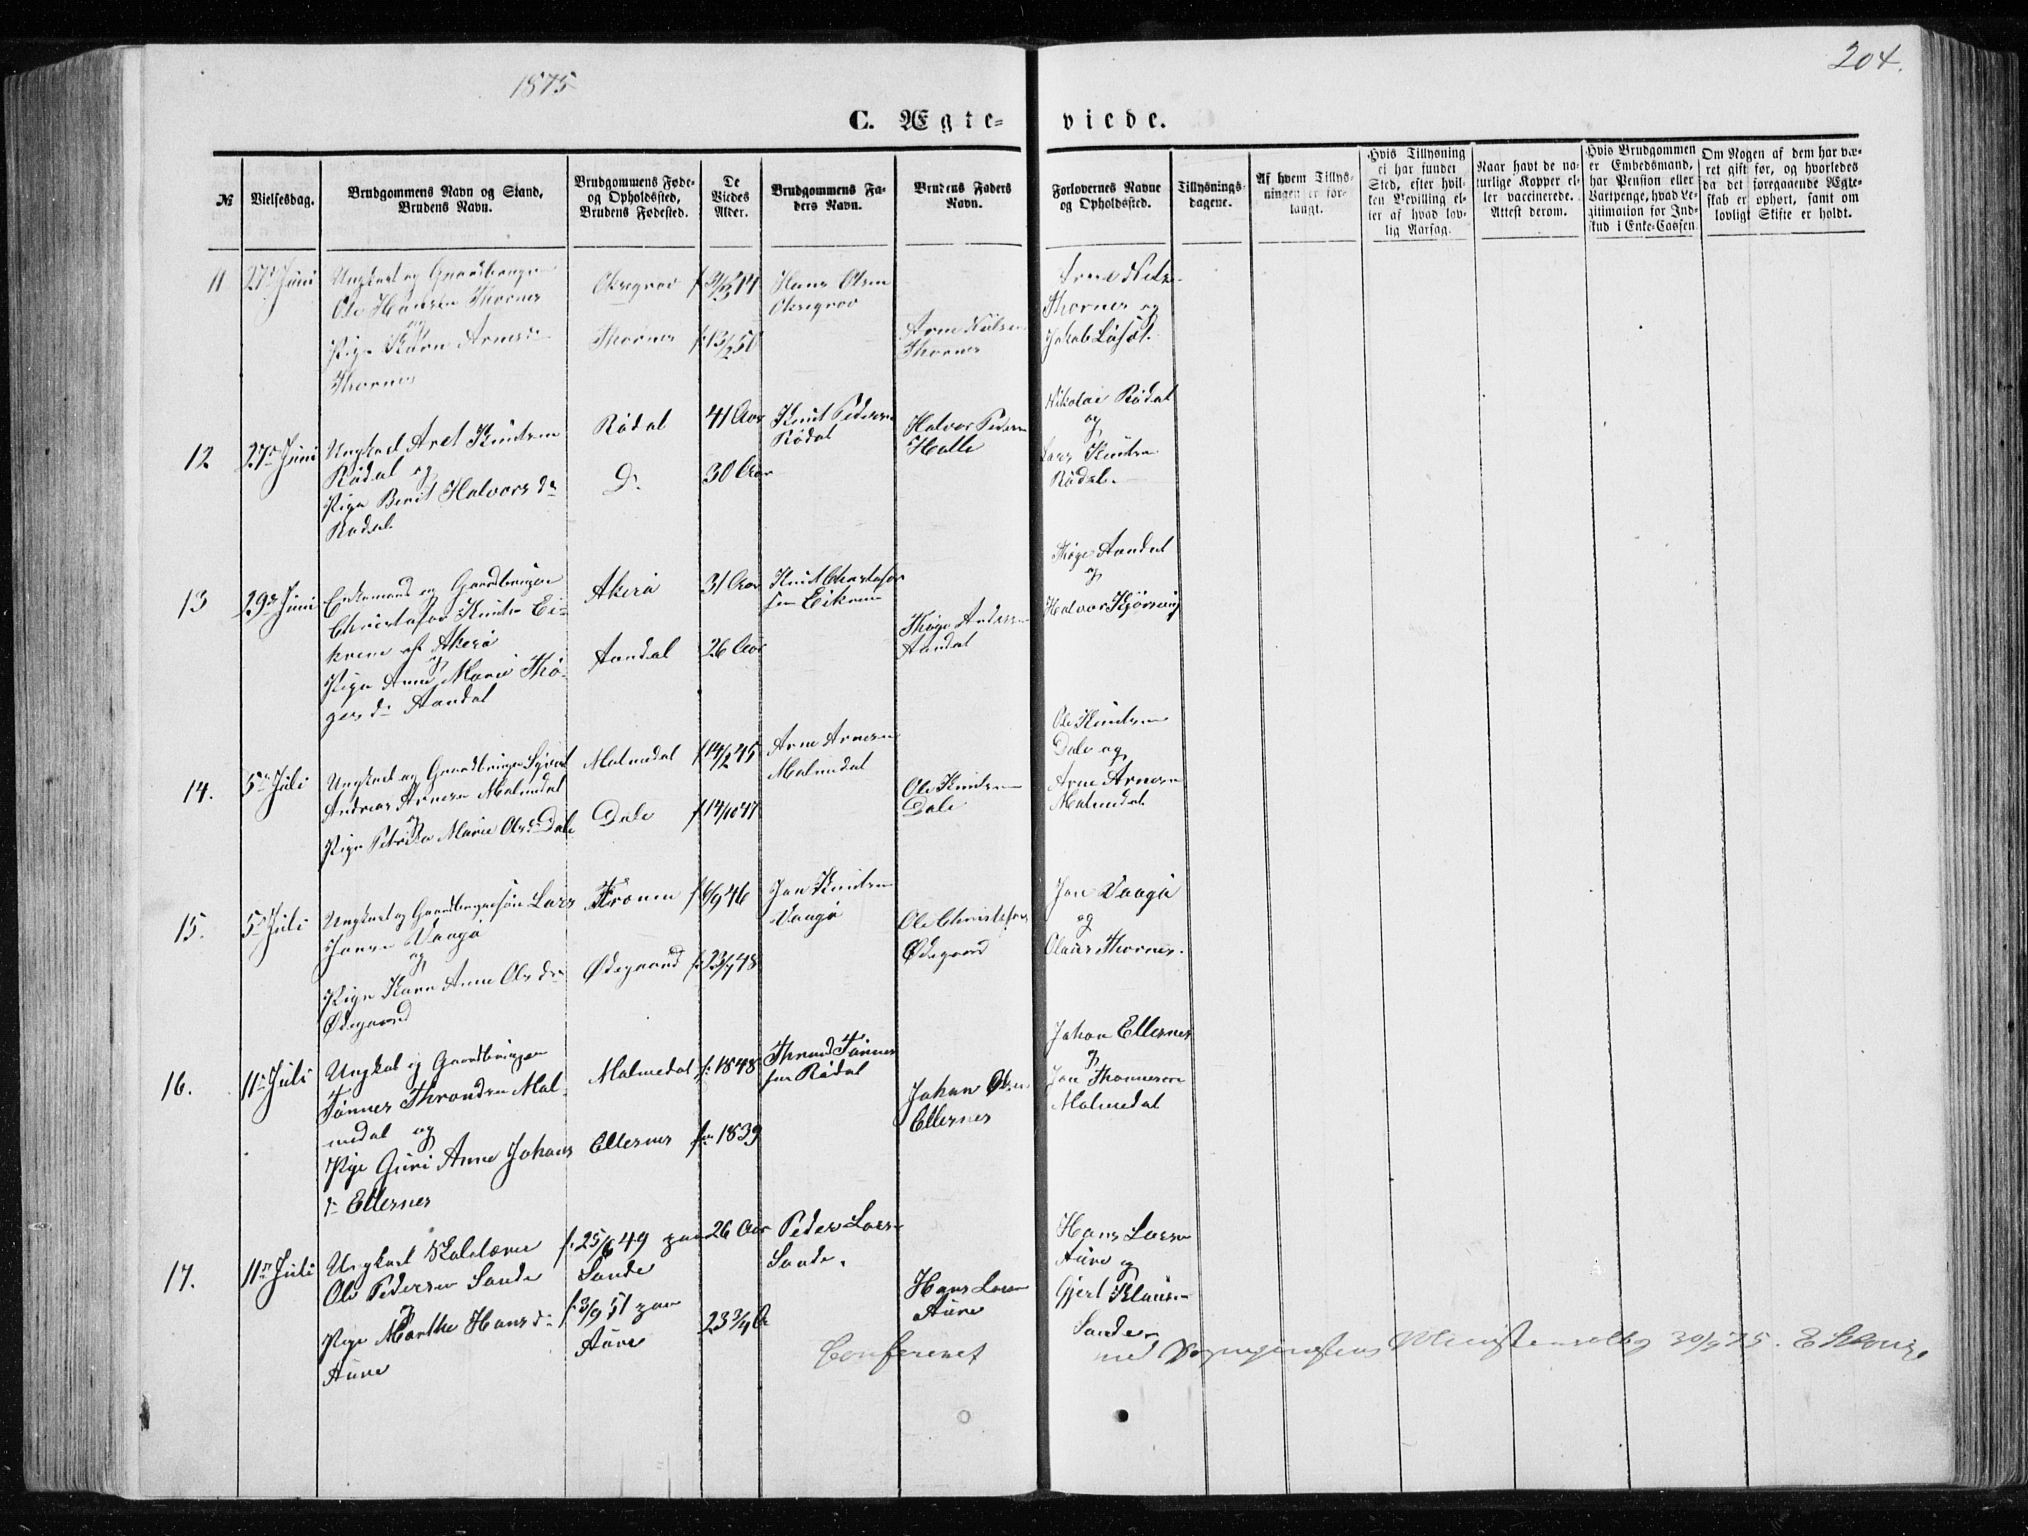 1875
204.
C. Ægte-
viede.
№
Vielsesdag.
Brudgommens Navn og Stand,
Brudens Navn.
Brudgommens Føde-
og Opholdssted,
Brudens Fødested.
De
Viedes
Alder.
Brudgommens Fa-
ders Navn.
Brudens Faders
Navn.
Forlovernes Navne
og Opholdssted.
Tillysnings-
dagene.
Af hvem Tillys-
ningen er for-
langt.
Hvis Tillysning
ei har fundet
Sted, efter hvil-
ken Bevilling el-
ler af hvad lov-
lig Aarsag.
Naar havt de na-
turlige Kopper el-
ler vaccinerede.
Attest derom.
Hvis Brudgommen
er Embedsmand,
har Pension eller
Vartpenge, hvad Le-
gitimation for Ind-
skud i Enke-Cassen.
Om Nogen af dem har væ-
ret gift før, og hvorledes
da det foregaaende Ægte-
skab er ophørt, samt om
lovligt Skifte er holdt.
11
27de Juni
Ungkarl og Gaardbruger
Ole Hansen Thornes
og
Pige Karn Arnesdr
Thornes
Thornes
Hans Olsen
Arne Nilsen
Thornes
Arne Nils
Thornes og
Jakob
12
27de Juni
Ungkarl Knutsen
Rødal og
Pige Berit Halvorsdr
Rødal
Rødal
Do
41 Aar
30 Aar
Knut Pedersen
Rødal
Halvor Pedersen
Halle
Nikolai Rødal
og
Lars Knutsen
Rødal.
13
29de Juni
Enkemand og Gaardbruger
Christofer Knuts Ei-
krem af Akerø
og
Pige Anne Marie Thø-
gersdr Aandal
Akerø
Aandal
31 Aar
26 Aar
Knut Christofer
sen Eikrem
Thøge Andersen
Aandal
Thøge Aandal
og
Halvor
14.
5te Juli
Ungkarl og Gaardbruger
Andreas Arnesen Malmedal
og
Pige Marie Olsdr Dale
Malmedal
Dale
f 14/2 45
f 14/10 47
Arne Arnesen
Malmedal
Ole Knutsen
Dale
Ole Knutsen
Dale og
Arne Arnesen
Malmedal
15.
5te Juli
Ungkarl og Gaardbrugersøn Lars
Jonsen Vaagø
og
Pige Karn Anne Olsdr
Ødegaard
Ødegaard
f 6/9 46
f 23/7 48
Jon Knutsen
Vaagø
Ole Christofers
Ødegaard
Jon Vaagø
og
Olaus Thornes.
16.
11te Juli
Ungkarl og Gaardbruger
Tønnes Throndsen Mal-
medal og
Pige Guri Anne Johans
dr Ellernes
Malmedal
Ellernes
f. 1848
f. 1839
Thrond Tønnes
sen Rødal
Johan Olsen
Ellernes
Johan Ellernes
og
Jon
Malmedal
17.
11te Juli
Ungkarl Skolelærer
Ole Pedersen Sande
og
Pige Marthe Hansdr
Aure
f. 25/6 49 paa
Sande
f. 3/9 51 paa
Aure
26 Aar
23 3/4 A
Peder Lars
Sande.
Hans Larsen
Aure
Hans Larsen
Aure og
Gjert Klausen
Sande
Confereret
med 30/9 75.